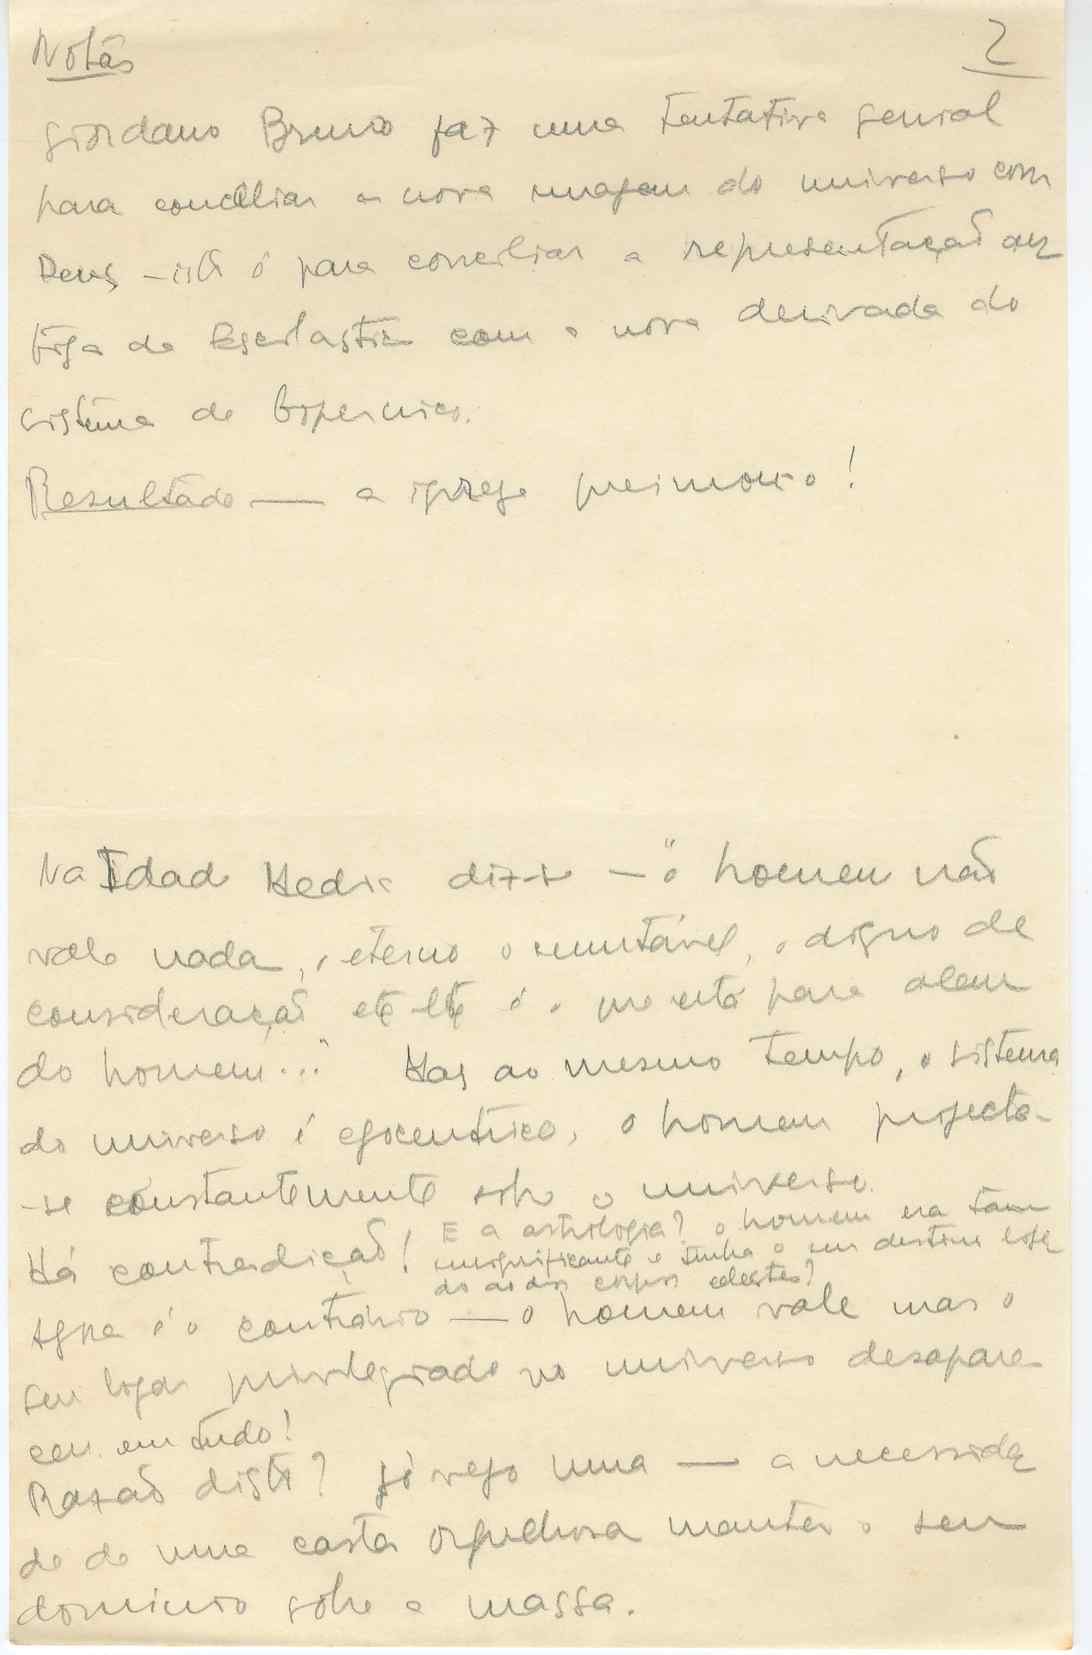 Notas
2
Giordano Bruno faz uma tentativa genial
para conciliar a nova imagem do universo com
Deus, - isto é para conciliar a representação an
tiga da Escolastica com a nova derivada do
sistema de Copernico.
Resultado — a igreja queimou-o!
Na Idade Media diz-se — "o homem não
vale nada, o eterno o imutável, o digno de
consideração etc etc é o que está para alem
do homem..." Mas ao mesmo tempo, o sistema
do universo é egocentrico, o homem projecta-
-se constantemente sobre o universo.
Há contradição! E a astrologia? o homem era tam
insignificante e tinha o seu destino liga
do ao dos corpos celestes?
Agora é o contrário — o homem vale mas o
seu logar privilegiado no universo desapare
ceu em tudo!
Razão disto? Só vejo uma — a necessida
de de uma casta orgulhosa manter o seu
dominio sobre a massa.